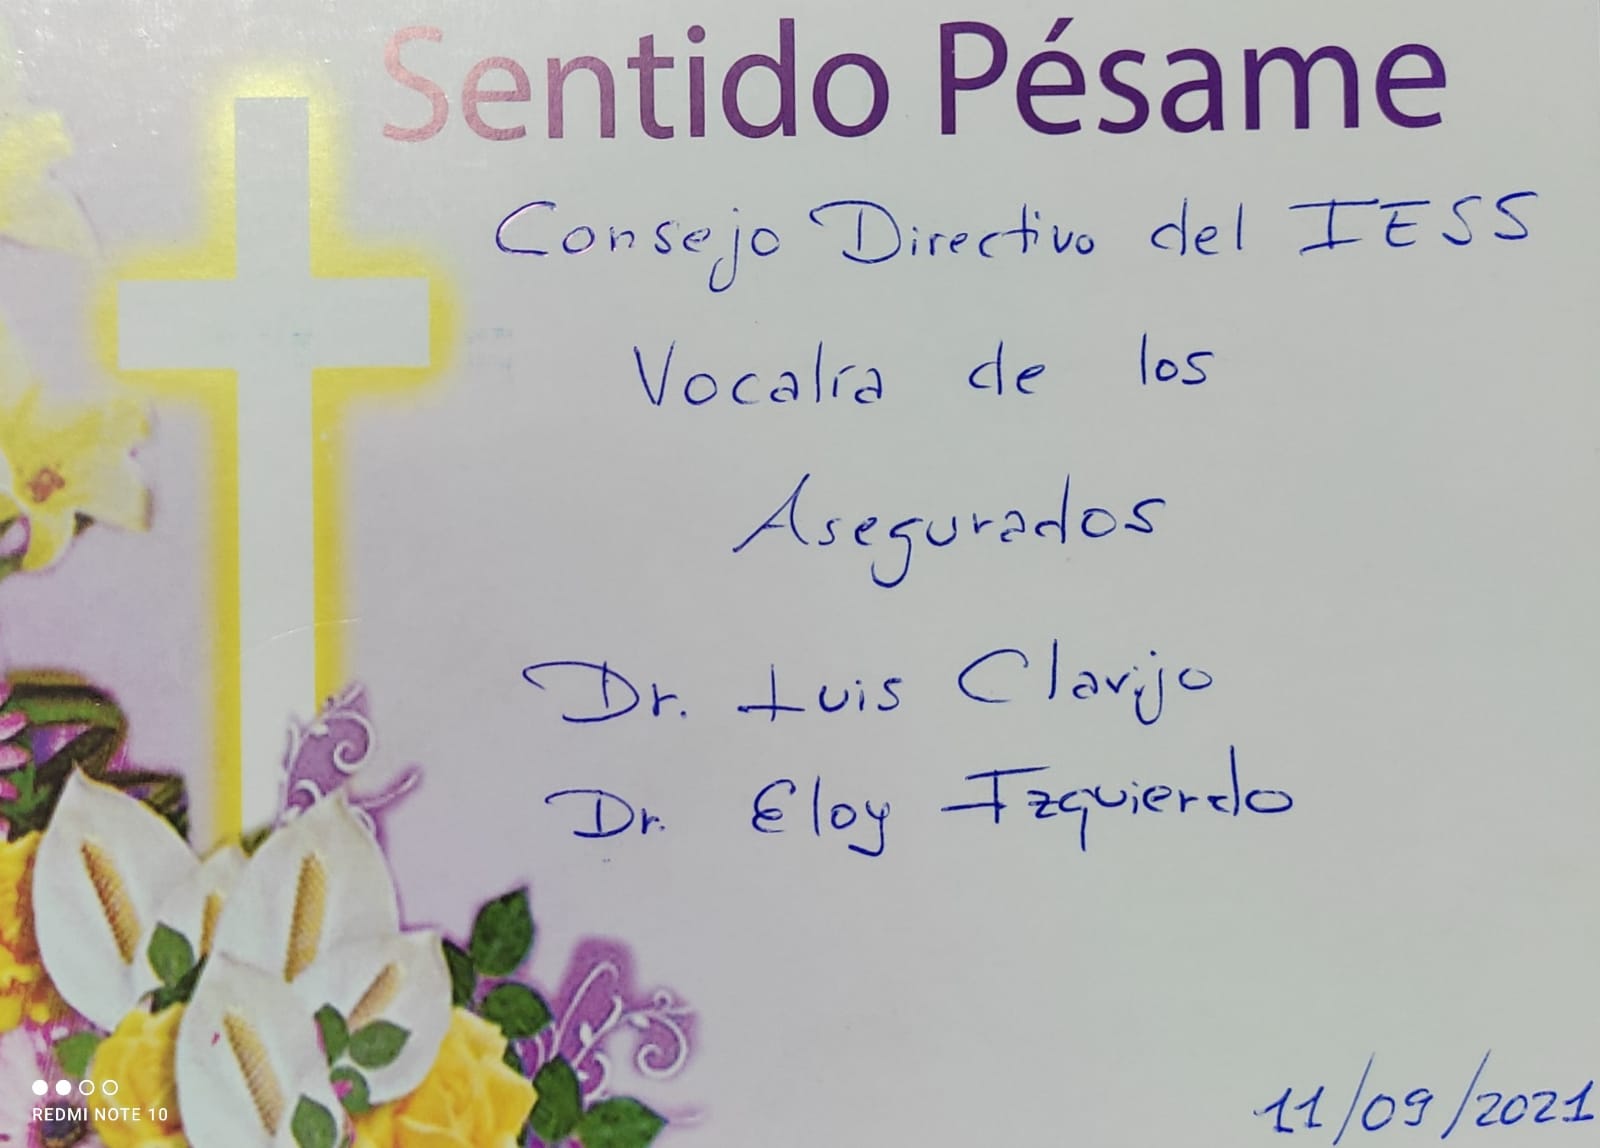 Sentido Pésame
Consejo Directivo del IESS
Vocalía de los
Asegurados
Dr. Luis Clavijo
Dr. Eloy Izquierdo
11/09/2021
REDMI NOTE 10